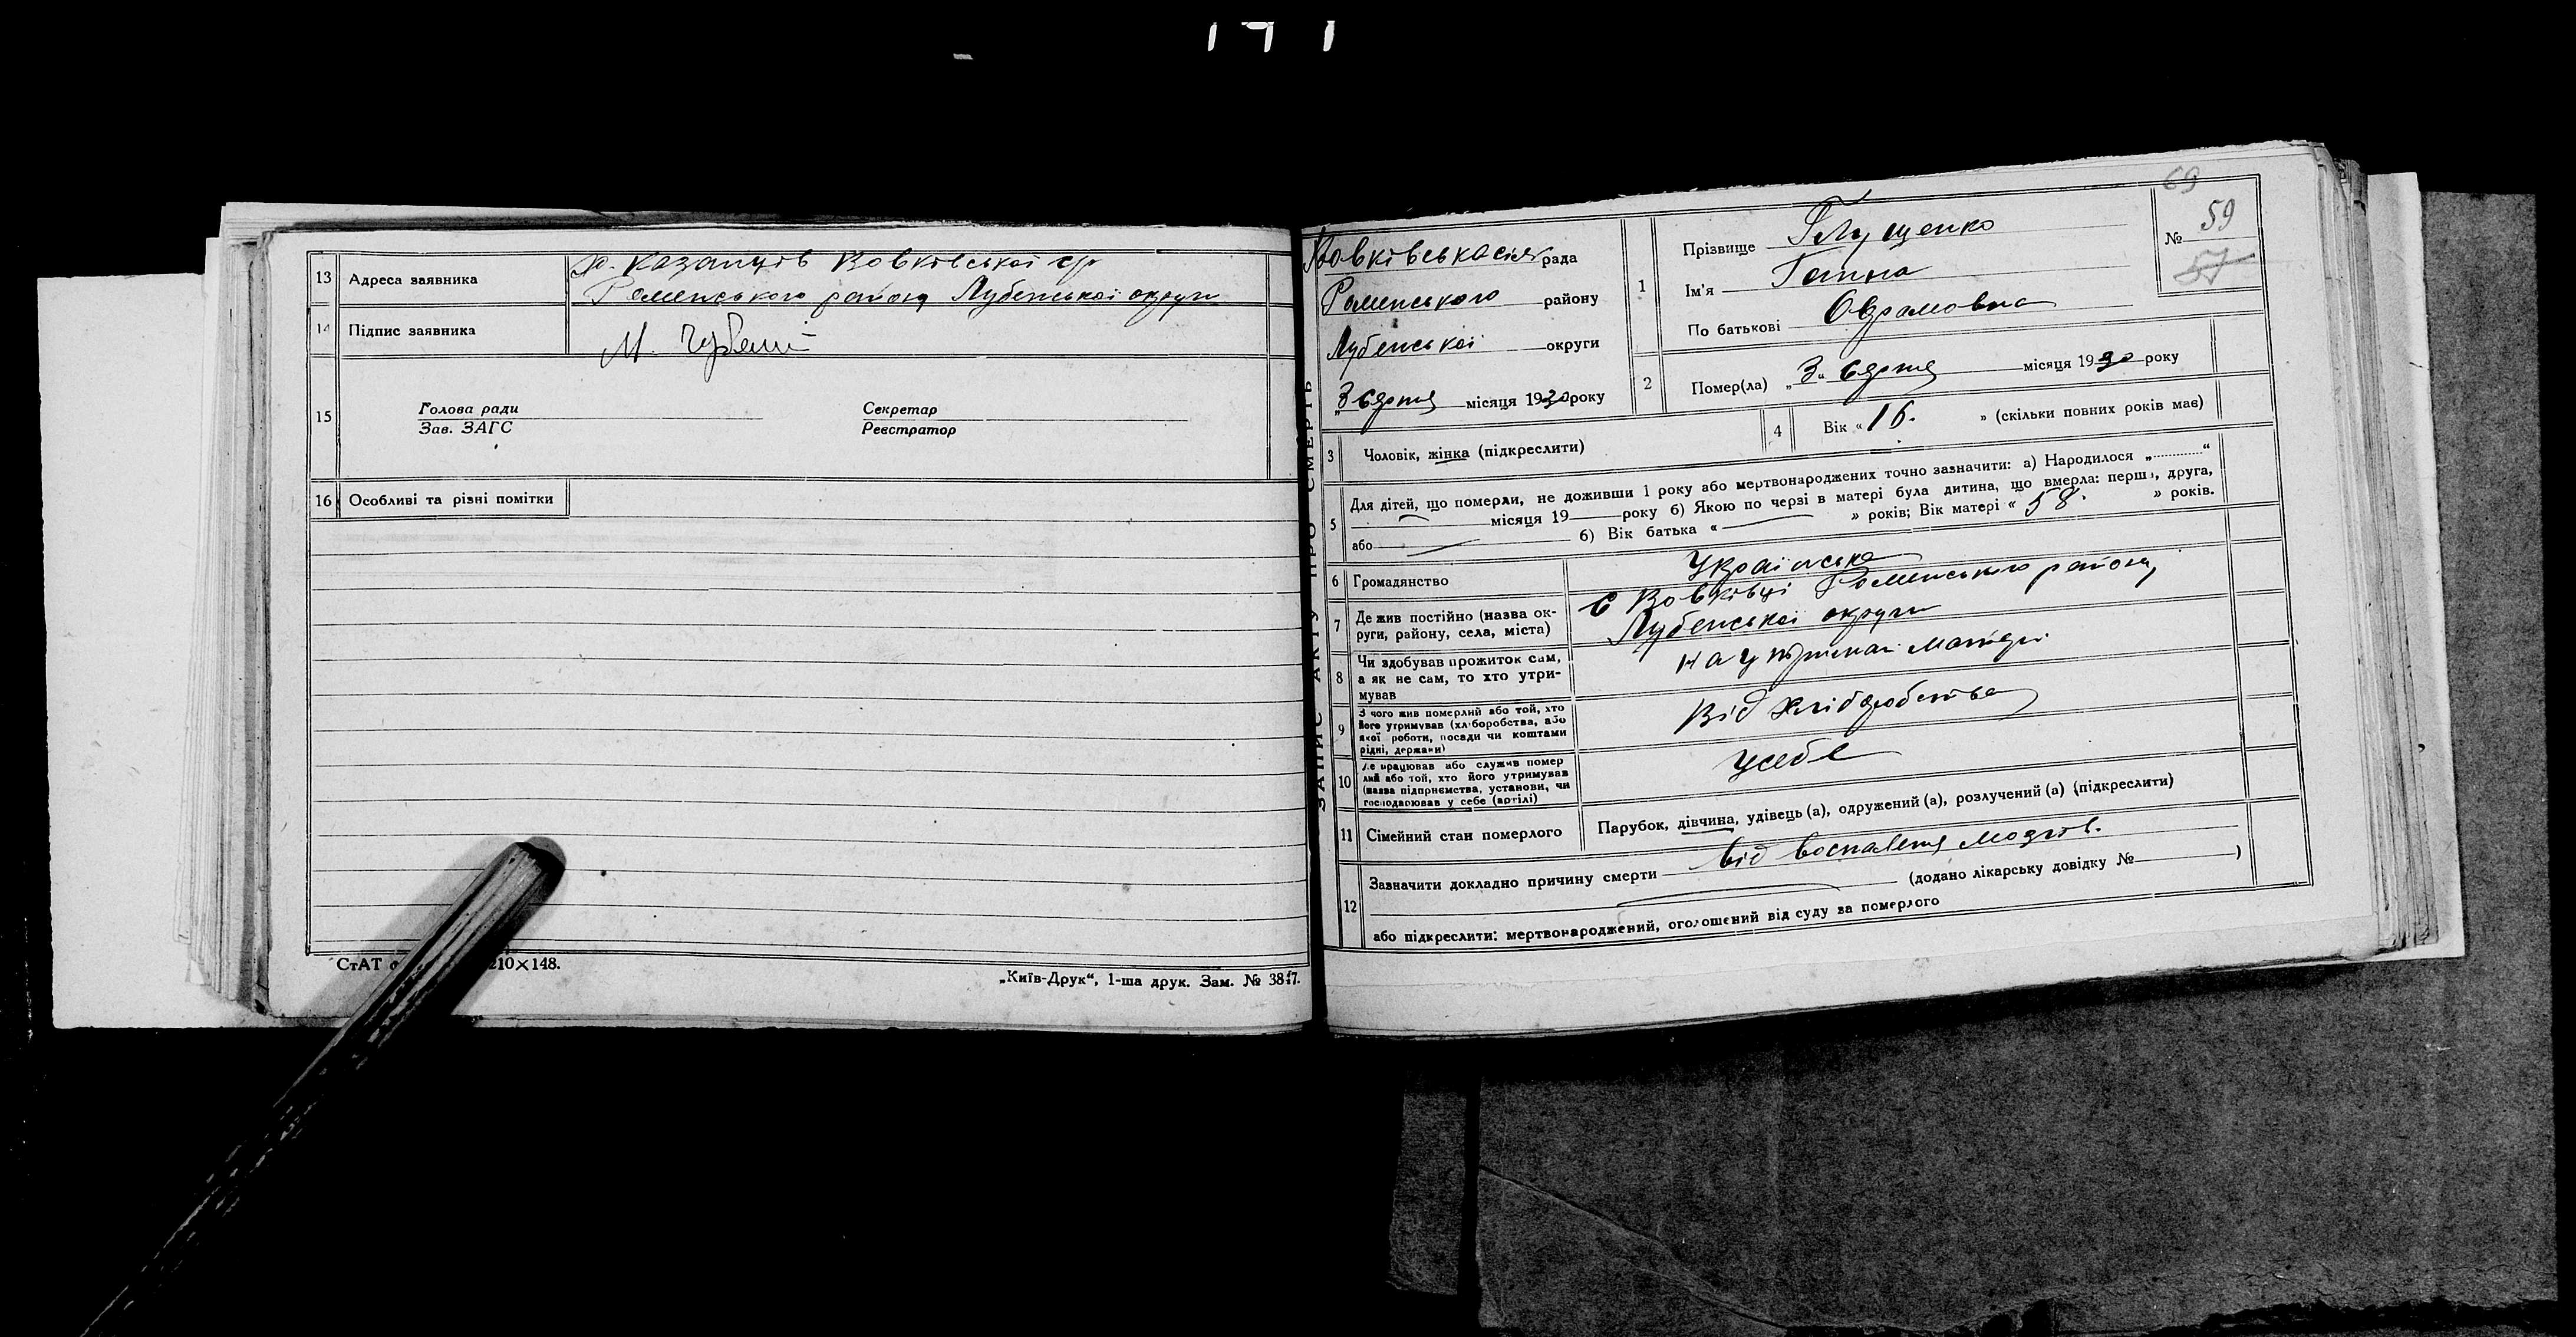 13 Адреса заявника х. Казанців Вовківської с/р
Роменського району Лубенської округи
14 Підпис заявника М.
15 Голова ради Секретар
Зав. ЗАГС Реєстратор
16 Особливі та різні помітки
СтАТ 210×148.
„Київ-Друк“, 1-ша друк. Зам. № 3847.
ЗАПИС АКТУ ПРО СМЕРТЬ
69
№ 59
57
Вовківська сіл рада
Роменського району
Лубенської округи
„3 серпня місяця 1930 року
1 Прізвище Глущенко
Ім'я Ганна
По батькові Оврамовна
2 Помер(ла) „3“ серпня місяця 1930 року
3 Чоловік, жінка (підкреслити)
4 Вік «16.» (скільки повних років має)
5 Для дітей, що померли, не доживши 1 року або мертвонароджених точно зазначити: а) Народилося „............“
місяця 19 року б) Якою по черзі в матері була дитина, що вмерла: перша, друга,
або б) Вік батька « » років; Вік матері «58.» років.
6 Громадянство Українська
7 Де жив постійно (назва ок-
руги, району, села, міста) с Вовківці Роменського району,
Лубенської округи
8 Чи здобував прожиток сам,
а як не сам, то хто утри-
мував на утриманні матери.
9 З чого жив померлий або той, хто
його утримував (хліборобства, або
якої роботи, посади чи коштами
рідні, держави) Від хліборобства
10 Де працював або служив помер
лий або той, хто його утримував
(назва підприємства, установи, чи
господарював у себе (артілі) усебе
11 Сімейний стан померлого Парубок, дівчина, удівець (а), одружений (а), розлучений (а) (підкреслити)
12 Зазначити докладно причину смерти від воспаленя мозгов.
(додано лікарську довідку № )
або підкреслити: мертвонароджений, оголошений від суду за померлого